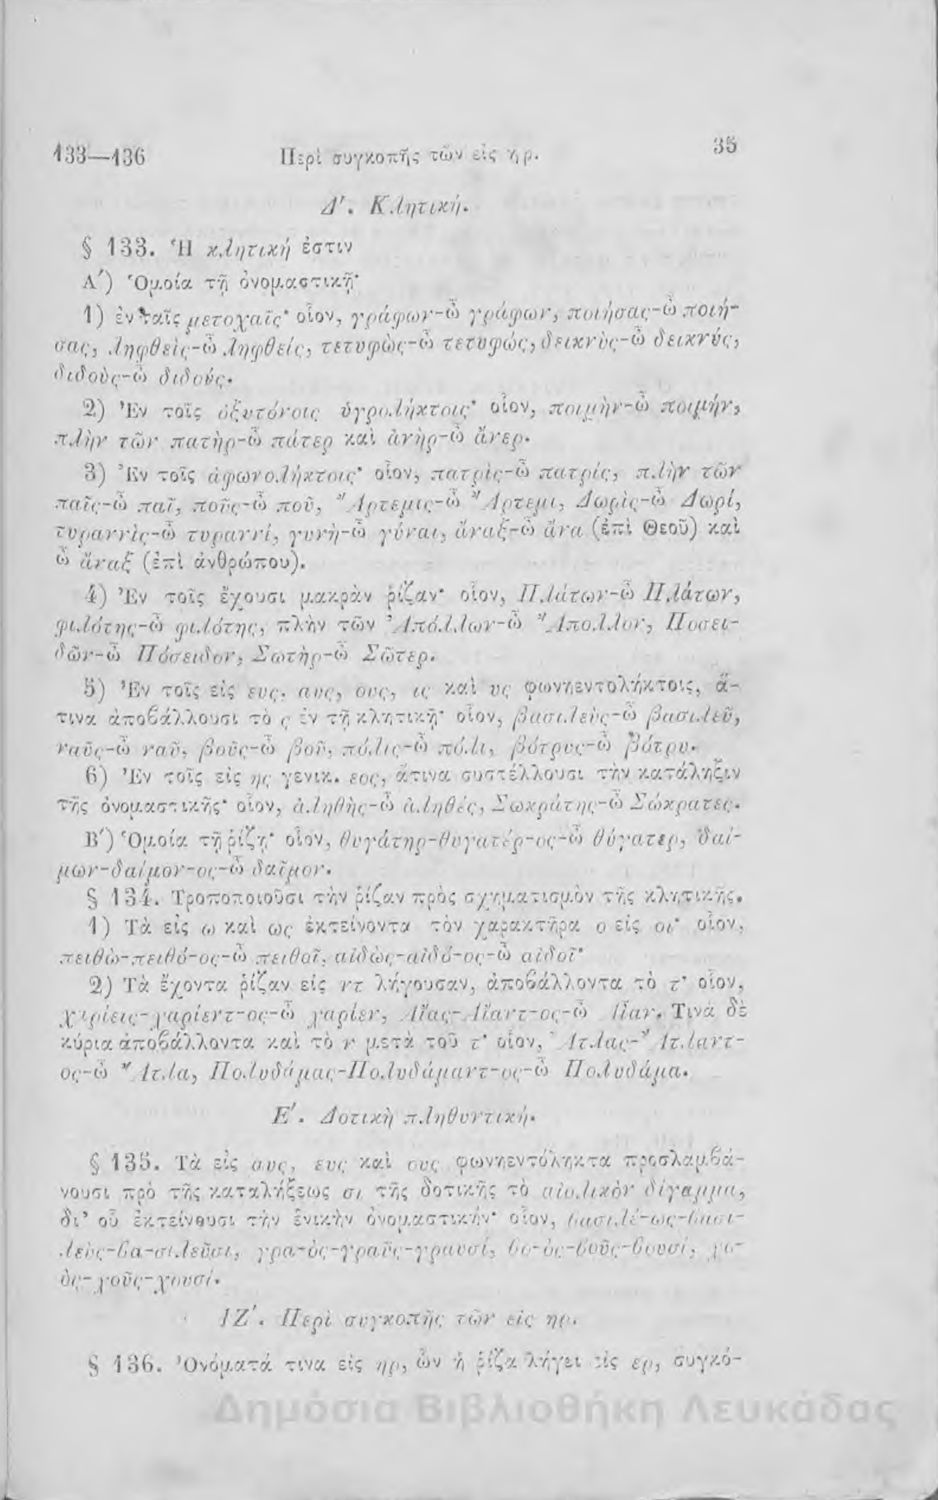 133—136 Περὶ συγκοπῆς τῶν εἰς ηρ. 35
Δ′. Κλητική.
§ 133. Ἡ κλητική ἐστιν
Α′) Ὁμοία τῇ ὀνομαστικῇ·
1) ἐν ταῖς μετοχαῖς· οἷον, γράφων-ὦ γράφων, ποιήσας-ὦ ποιή-
σας, ληφθεὶς-ὦ ληφθείς, τετυφὼς-ὦ τετυφώς, δεικνὺς-ὦ δεικνύς,
διδοὺς-ὦ διδούς.
2) Ἐν τοῖς ὀξυτόνοις ὑγρολήκτοις· οἷον, ποιμὴν-ὦ ποιμήν,
πλὴν τῶν πατὴρ-ὦ πάτερ καὶ ἀνὴρ-ὦ ἄνερ.
3) Ἐν τοῖς ἀφωνολήκτοις· οἷον, πατρὶς-ὦ πατρίς, πλὴν τῶν
παῖς-ὦ παῖ, ποῦς-ὦ ποῦ, Ἄρτεμις-ὦ Ἄρτεμι, Δωρὶς-ὦ Δωρί,
τυραννὶς-ὦ τυραννί, γυνὴ-ὦ γύναι, ἄναξ-ὦ ἄνα (ἐπὶ Θεοῦ) καὶ
ὦ ἄναξ (ἐπὶ ἀνθρώπου).
4) Ἐν τοῖς ἔχουσι μακρὰν ῥίζαν· οἷον, Πλάτων-ὦ Πλάτων,
φιλότης-ὦ φιλότης, πλὴν τῶν Ἀπόλλων-ὦ Ἄπολλον, Ποσει-
δῶν-ὦ Πόσειδον, Σωτὴρ-ὦ Σῶτερ.
5) Ἐν τοῖς εἰς ευς, αυς, ους, ις καὶ υς φωνηεντολήκτοις, ἅ-
τινα ἀποβάλλουσι τὸ ς ἐν τῇ κλητικῇ· οἷον, βασιλεὺς-ὦ βασιλεῦ,
ναῦς-ὦ ναῦ, βοῦς-ὦ βοῦ, πόλις-ὦ πόλι, βότρυς-ὦ βότρυ.
6) Ἐν τοῖς εἰς ης γενικ. εος, ἅτινα συστέλλουσι τὴν κατάληξιν
τῆς ὀνομαστικῆς· οἷον, ἀληθὴς-ὦ ἀληθές, Σωκράτης-ὦ Σώκρατες.
Β′) Ὁμοία τῇ ῥίζῃ· οἷον, θυγάτηρ-θυγατέρ-ος-ὦ θύγατερ, δαί-
μων-δαίμον-ος-ὦ δαῖμον.
§ 134. Τροποποιοῦσι τὴν ῥίζαν πρὸς σχηματισμὸν τῆς κλητικῆς.
1) Τὰ εἰς ω καὶ ως ἐκτείνοντα τὸν χαρακτῆρα ο εἰς οι· οἷον,
πειθὼ-πειθό-ος-ὦ πειθοῖ, αἰδὼς-αἰδό-ος-ὦ αἰδοῖ·
2) Τὰ ἔχοντα ῥίζαν εἰς ντ λήγουσαν, ἀποβάλλοντα τὸ τ· οἷον,
χαρίεις-χαρίεντ-ος-ὦ χαρίεν, Αἴας-Αἴαντ-ος-ὦ Αἶαν. Τινὰ δὲ
κύρια ἀποβάλλοντα καὶ τὸ ν μετὰ τοῦ τ· οἷον, Ἄτλας-Ἄτλαντ-
ος-ὦ Ἄτλα, Πολυδάμας-Πολυδάμαντ-ος-ὦ Πολυδάμα.
Ε′. Δοτικὴ πληθυντική.
§ 135. Τὰ εἰς αυς, ευς καὶ ους φωνηεντόληκτα προσλαμβά-
νουσι πρὸ τῆς καταλήξεως σι τῆς δοτικῆς τὸ αἰολικὸν δίγαμμα,
δι’ οὗ ἐκτείνουσι τὴν ἑνικὴν ὀνομαστικήν· οἷον, βασιλέ-ως-βασι-
λεὺς-βα-σιλεῦσι, γρα-ὸς-γραῦς-γραυσί, βο-ὸς-βοῦς-βουσί, χο-
ὸς-χοῦς-χουσί.
ΙΖ′. Περὶ συγκοπῆς τῶν εἰς ηρ.
§ 136. Ὀνόματά τινα εἰς ηρ, ὧν ἡ ῥίζα λήγει εἰς ερ, συγκό-
Δημόσια Βιβλιοθήκη Λευκάδας